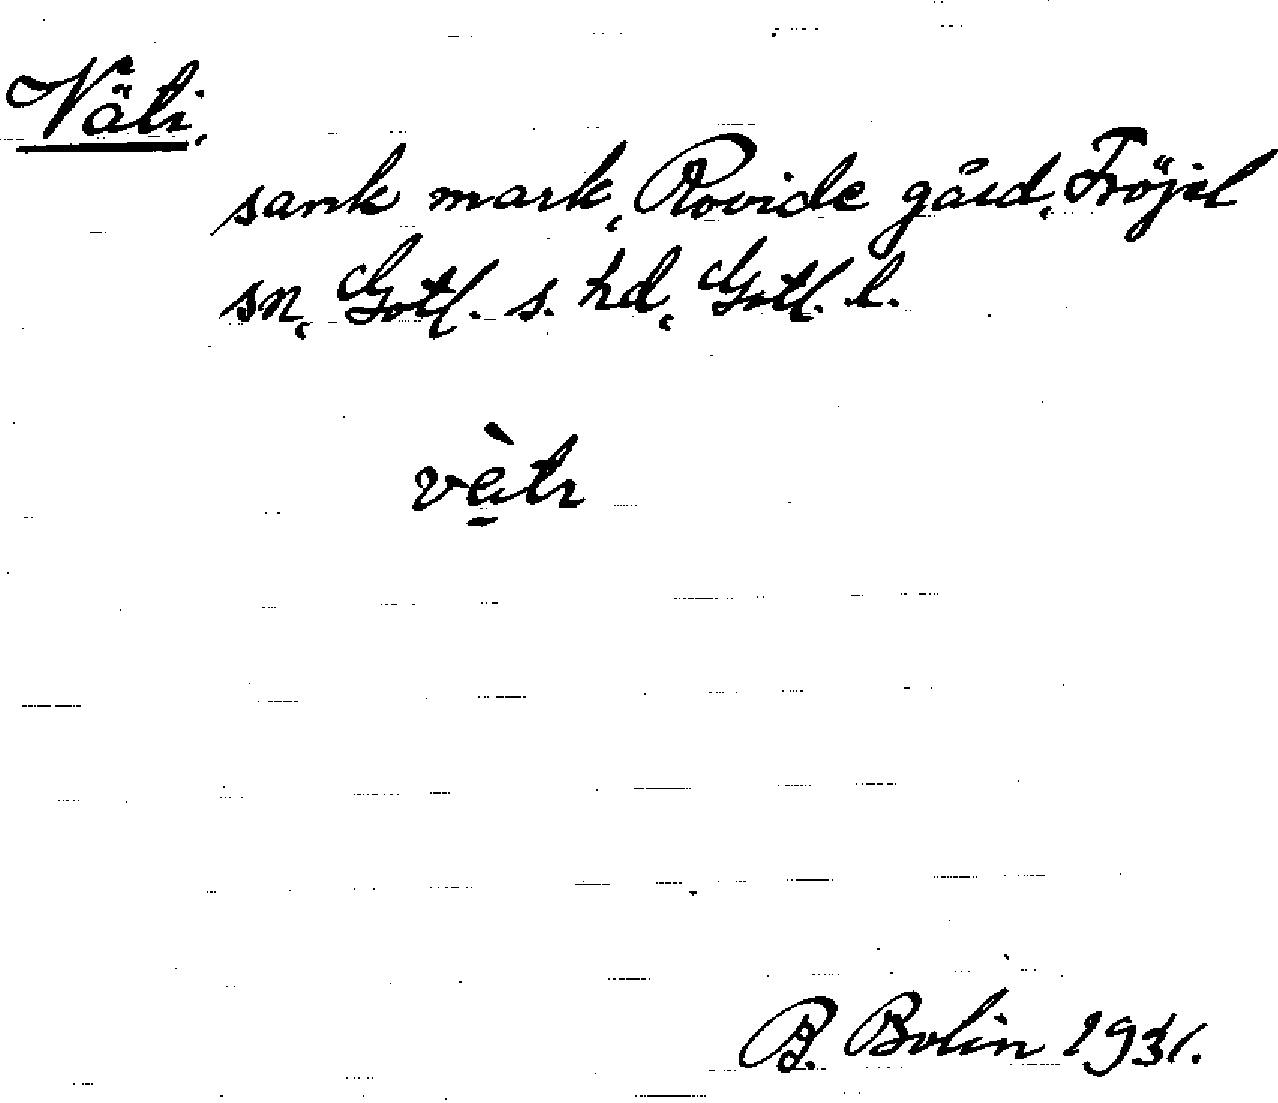 Väti,
sank mark, Rovide gård, Fröjel
sn, Gotl. s. hd, Gotl. l.
vètı
B. Bolin 1931.